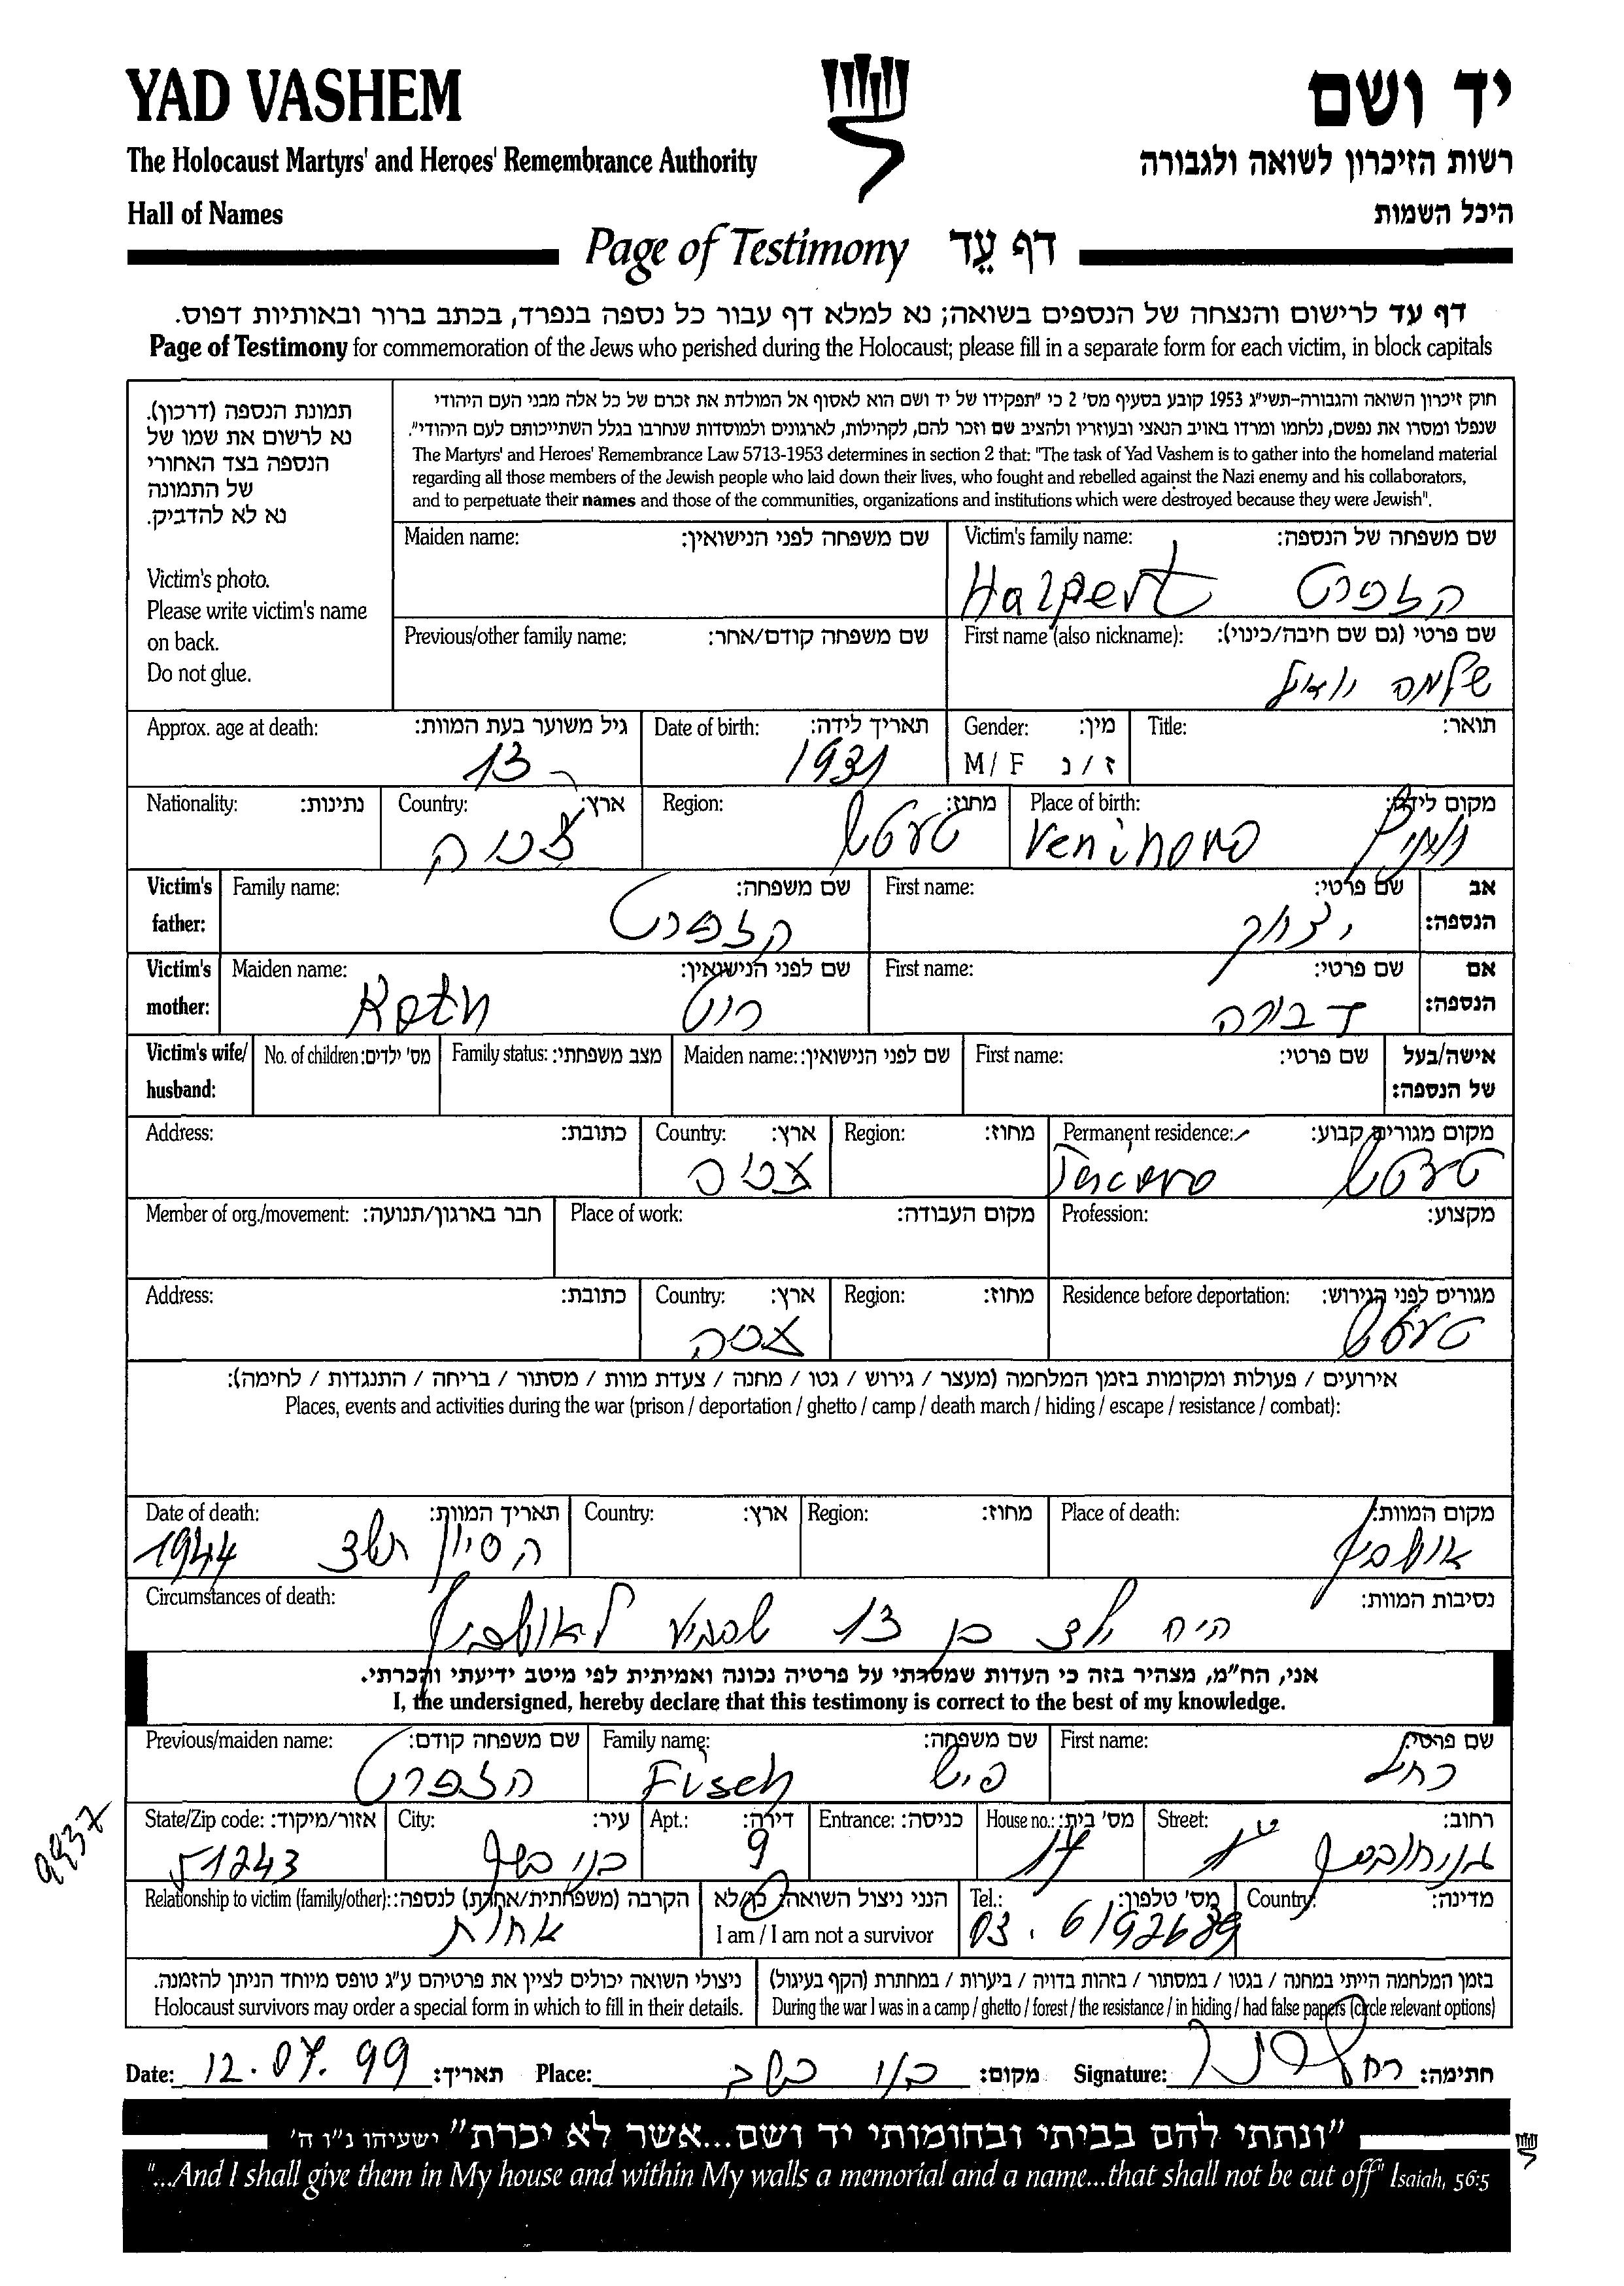 YAD VASHEM
יד ושם
The Holocaust Martyrs' and Heroes' Remembrance Authority
רשות הזיכרון לשואה ולגבורה
Hall of Names
היכל השמות
Page of Testimony דף עֵד
דף עד לרישום והנצחה של הנספים בשואה; נא למלא דף עבור כל נספה בנפרד, בכתב ברור ובאותיות דפוס.
Page of Testimony for commemoration of the Jews who perished during the Holocaust; please fill in a separate form for each victim, in block capitals
תמונת הנספה (דרכון).
נא לרשום את שמו של
הנספה בצד האחורי
של התמונה
נא לא להדביק.
Victim's photo.
Please write victim's name
on back.
Do not glue.
חוק זיכרון השואה והגבורה-תשי"ג 1953 קובע בסעיף מס' 2 כי "תפקידו של יד ושם הוא לאסוף אל המולדת את זכרם של כל אלה מבני העם היהודי
שנפלו ומסרו את נפשם, נלחמו ומרדו באויב הנאצי ובעוזריו ולהציב שם וזכר להם, לקהילות, לארגונים ולמוסדות שנחרבו בגלל השתייכותם לעם היהודי".
The Martyrs' and Heroes' Remembrance Law 5713-1953 determines in section 2 that: "The task of Yad Vashem is to gather into the homeland material
regarding all those members of the Jewish people who laid down their lives, who fought and rebelled against the Nazi enemy and his collaborators,
and to perpetuate their names and those of the communities, organizations and institutions which were destroyed because they were Jewish".
Maiden name: שם משפחה לפני הנישואין: Victim's family name: שם משפחה של הנספה:
Halpert הלפרט
Previous/other family name: שם משפחה קודם/אחר: First name (also nickname): שם פרטי (גם שם חיבה/כינוי):
שלמה
Approx. age at death: גיל משוער בעת המוות: Date of birth: תאריך לידה: Gender: מין: Title: תואר:
13 1931 M / F ז / נ
Nationality: נתינות: Country: ארץ: Region: מחוז: Place of birth: מקום לידה:
Victim's father: Family name: שם משפחה: First name: שם פרטי: אב הנספה:
הלפרט יצחק
Victim's mother: Maiden name: שם לפני הנישואין: First name: שם פרטי: אם הנספה:
Roth רוט דבורה
Victim's wife/ husband: No. of children: מס' ילדים: Family status: מצב משפחתי: Maiden name: שם לפני הנישואין: First name: שם פרטי: אישה/בעל של הנספה:
Address: כתובת: Country: ארץ: Region: מחוז: Permanent residence: מקום מגורים קבוע:
Member of org./movement: חבר בארגון/תנועה: Place of work: מקום העבודה: Profession: מקצוע:
Address: כתובת: Country: ארץ: Region: מחוז: Residence before deportation: מגורים לפני הגירוש:
אירועים / פעולות ומקומות בזמן המלחמה (מעצר / גירוש / גטו / מחנה / צעדת מוות / מסתור / בריחה / התנגדות / לחימה):
Places, events and activities during the war (prison / deportation / ghetto / camp / death march / hiding / escape / resistance / combat):
Date of death: תאריך המוות: Country: ארץ: Region: מחוז: Place of death: מקום המוות:
1944 ה סיון תשד אושביץ
Circumstances of death: נסיבות המוות:
היה ילד בן 13 שהגיע לאושביץ
אני, הח"מ, מצהיר בזה כי העדות שמסרתי על פרטיה נכונה ואמיתית לפי מיטב ידיעתי והכרתי.
I, the undersigned, hereby declare that this testimony is correct to the best of my knowledge.
Previous/maiden name: שם משפחה קודם: Family name: שם משפחה: First name: שם פרטי:
הלפרט Fisch פיש רחל
State/Zip code: אזור/מיקוד: City: עיר: Apt.: דירה: Entrance: כניסה: House no.: מס' בית: Street: רחוב:
51243 בני ברק 9 17
9937
Relationship to victim (family/other): הקרבה (משפחתית/אחרת) לנספה: הנני ניצול השואה: כן/לא Tel.: מס' טלפון: Country: מדינה:
אחות I am / I am not a survivor 03.
בזמן המלחמה הייתי במחנה / בגטו / במסתור / בזהות בדויה / ביערות / במחתרת (הקף בעיגול)
During the war I was in a camp / ghetto / forest / the resistance / in hiding / had false papers (circle relevant options)
ניצולי השואה יכולים לציין את פרטיהם ע"ג טופס מיוחד הניתן להזמנה.
Holocaust survivors may order a special form in which to fill in their details.
Date: 12.07.99 תאריך: Place: בני ברק מקום: Signature: חתימה:
"ונתתי להם בביתי ובחומותי יד ושם...אשר לא יכרת" ישעיהו נ"ו ה'
"...And I shall give them in My house and within My walls a memorial and a name...that shall not be cut off" Isaiah, 56:5